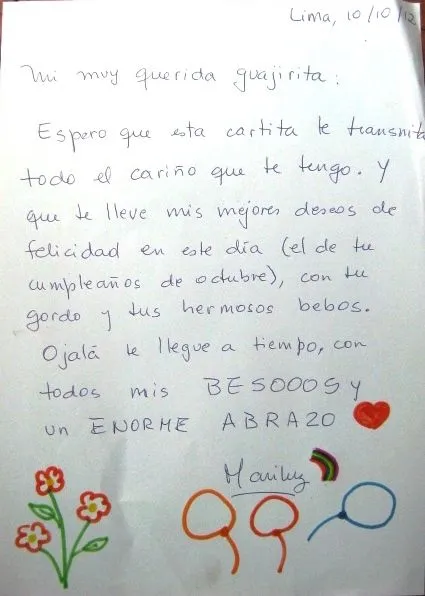 Lima, 10/10/12
Mi muy querida guajirita:
Espero que esta cartita te transmita
todo el cariño que te tengo. Y
que te lleve mis mejores deseos de
felicidad en este día (el de tu
cumpleaños de octubre), con tu
gordo y tus hermosos bebos.
Ojalá te llegue a tiempo, con
todos mis BESOOOS y
un ENORME ABRAZO
Mariluz